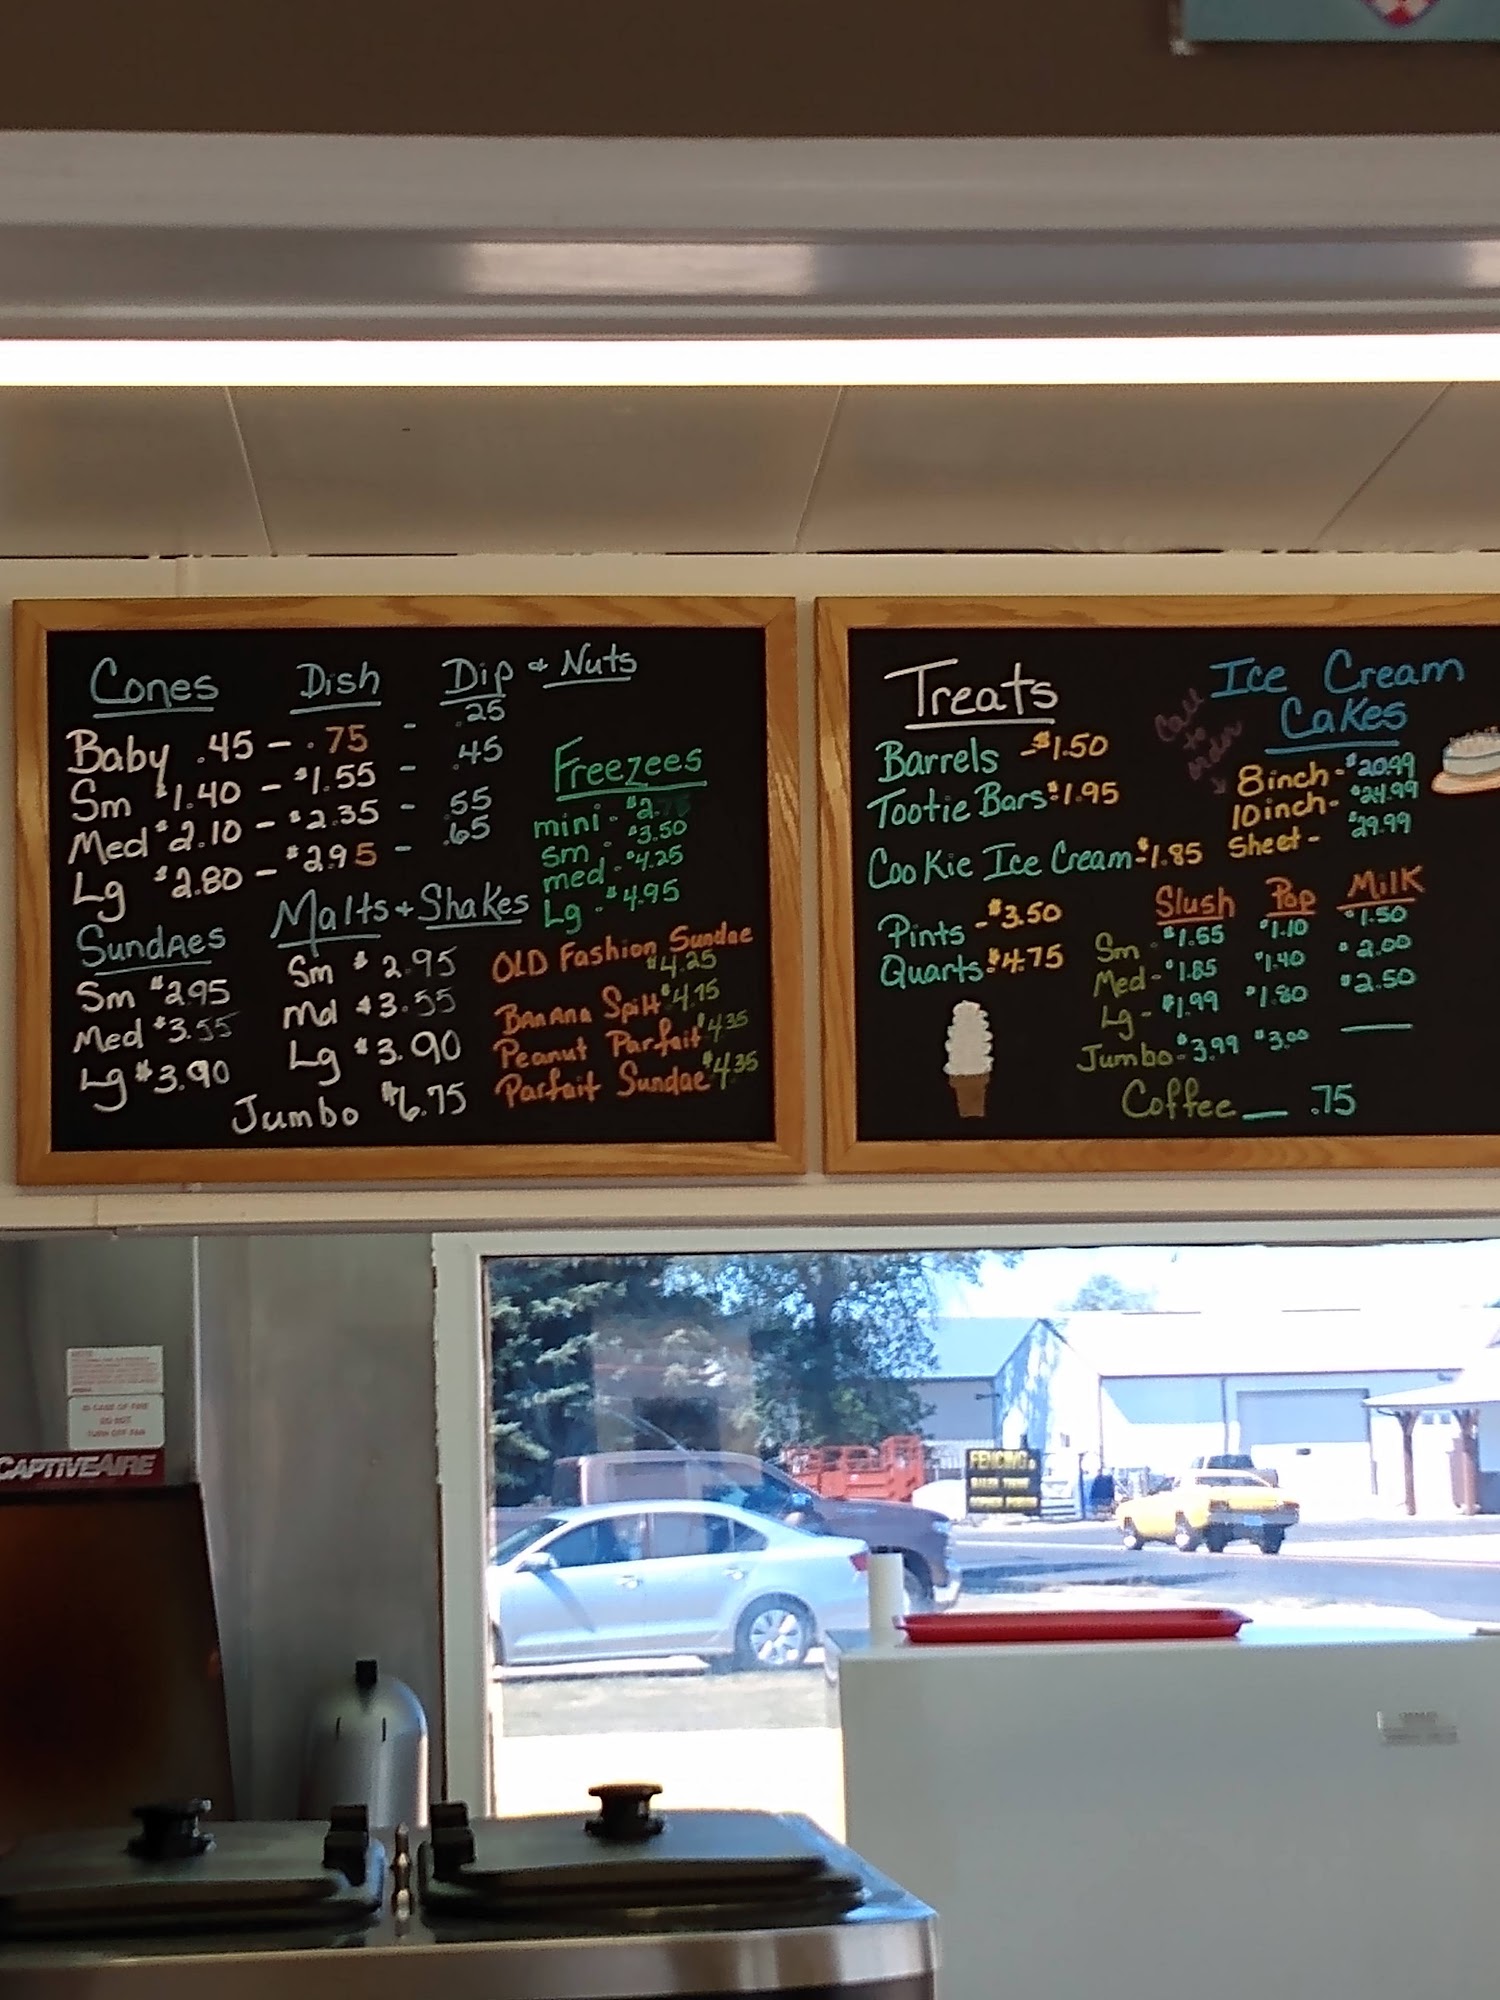 Cones Dish Dip & Nuts
Baby .45 - .75 - .25
Sm $1.40 - $1.55 - .45
Med $2.10 - $2.35 - .55
Lg $2.80 - $2.95 - .65
Freezees
mini - $2.75
sm - $3.50
med - $4.25
Lg - $4.95
Sundaes
Sm $2.95
Med $3.55
Lg $3.90
Malts & Shakes
Sm $2.95
Md $3.55
Lg $3.90
Jumbo $6.75
OLD Fashion Sundae
$4.25
Banana Split $4.75
Peanut Parfait $4.35
Parfait Sundae $4.35
Treats
Barrels - $1.50
Tootie Bars - $1.95
Cookie Ice Cream - $1.85
Pints - $3.50
Quarts - $4.75
Ice Cream
Cakes
Call
to
order
8inch - $20.99
10inch - $24.99
Sheet - $29.99
Slush Pop Milk
Sm - $1.65 $1.10 $1.50
Med - $1.85 $1.40 $2.00
Lg - $1.99 $1.80 $2.50
Jumbo - $3.99 $3.00 —
Coffee — .75
IN CASE OF FIRE
DO NOT
TURN OFF FAN
CAPTIVEAIRE
FENCING &